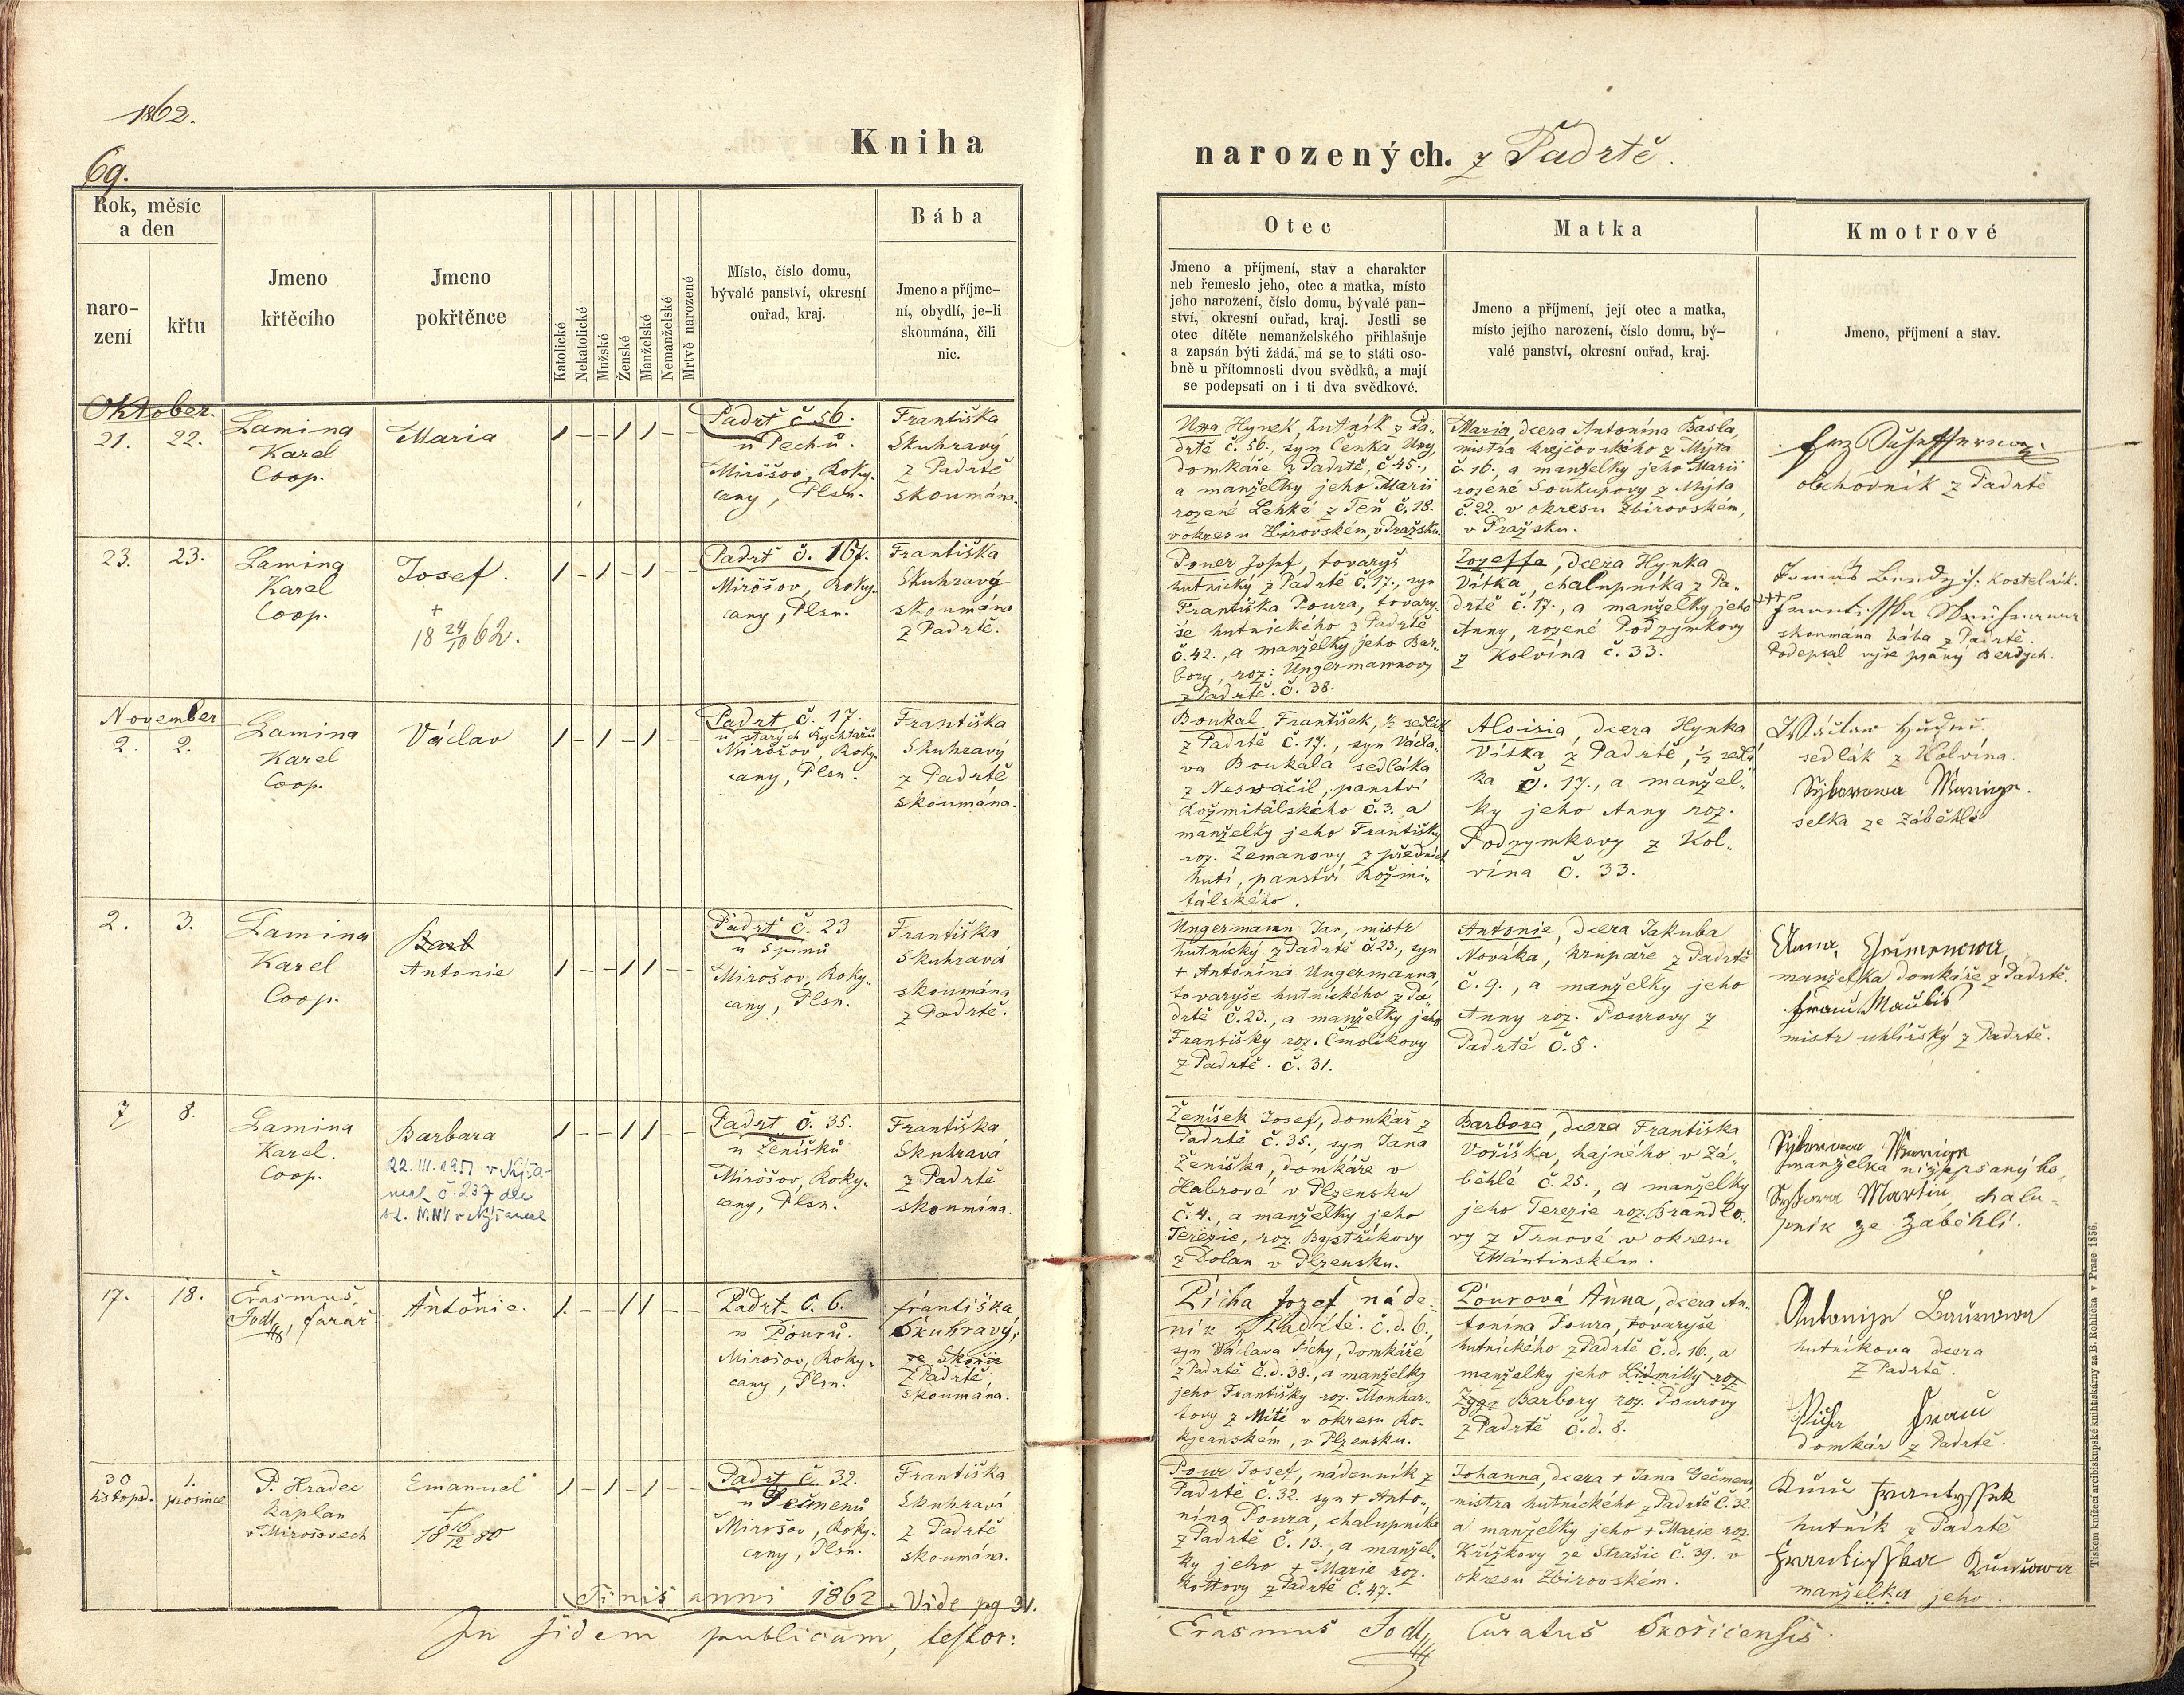 1862.
69.
Kniha
Rok, měsíc
a den
naro-
zení
křtu
Jmeno
křtěcího
Jmeno
pokřtěnce
Katolické
Nekatolické
Mužské
Ženské
Manželské
Nemanželské
Mrtvě narozené
Místo, číslo domu,
bývalé panství, okresní
ouřad, kraj.
Bába
Jmeno a příjme-
ní, obydlí, je-li
skoumána, čili
nic.
narozených. z Padrtě.
Otec
Jmeno a příjmení, stav a charakter
neb řemeslo jeho, otec a matka, místo
jeho narození, číslo domu, bývalé pan-
ství, okresní ouřad, kraj. Jestli se
otec dítěte nemanželského přihlašuje
a zapsán býti žádá, má se to státi oso-
bně u přítomnosti dvou svědků, a mají
se podepsati on i ti dva svědkové.
Matka
Jmeno a příjmení, její otec a matka,
místo jejího narození, číslo domu, bý-
valé panství, okresní ouřad, kraj.
Kmotrové
Jmeno, příjmení a stav.
Oktober.
21. 22.
Lamina
Karel
Coop.
Maria
Padrť č 56.
u Pechů.
Mirošov, Roky-
cany, Plsn.
Františka
Skuhravý
z Padrtě
skoumána.
Una Hynek hutník z Pa-
drtě č. 56., syn Čeňka Uny,
domkáře z Padrtě, č 45.,
a manželky jeho Marii
rozené Lehké z Těň č. 18.
v okresu Zbirovském, v Pražsku.
Maria dcera Antonína Bašla,
mistra krejčovského z Mýta
č. 16., a manželky jeho Marii
rozené Soukupovy z Mýta
č. 22. v okresu Zbirovském,
v Pražsku.
obchodník z Padrtě
23. 23.
Lamina
Karel
Coop.
Josef.
+
18 24/10 62.
Padrť č. 167.
Mirošov, Roky-
cany, Plsn.
Františka
Skuhravý
skoumána
z Padrtě.
Pouer Josef, tovaryš
hutnický z Padrtě č. 17., syn
Františka Poura, tovary-
še hutnického z Padrtě
č. 42., a manželky jeho Bar-
bory, roz: Ungermannovy
z Padrtě. č. 38.
Jozeffa, dcera Hynka
Vítka, chalupníka z Pa-
drtě č. 17., a manželky jeho
Anny, rozené Podzymkovy
z Kolvína č. 33.
Tomáš Berdych. kostelník.
+++ Frantisska Skuhrawa
skoumána bába z Padrtě.
Podepsal výše psaný Berdych.
November
2. 2.
Lamina
Karel
Coop.
Václav
Padrt č. 17.
u starých Rychtářů
Mirošov, Roky-
cany, Plsn.
Františka
Skuhravý
z Padrtě
skoumána.
Boukal František, ½ sedlák
z Padrtě č. 17., syn Václa-
va Boukala sedláka
z Nesvačil, panství
Rožmitálského č. 3. a
manželky jeho Františky
roz. Zemanovy z předních
hutí, panství Rožmi-
tálského.
Aloisia, dcera Hynka
Vítka z Padrtě, ½ sedlá
ka č. 17., a manžel-
ky jeho Anny roz.
Podzymkovy z Kol-
vína č. 33.
sedlák z Kolvína.
selka ze Záběhlé
2. 3.
Lamina
Karel
Coop.
Barb
Antonie
Padrť č. 23
u Špinů
Mirošov, Roky-
cany, Plsn.
Františka
Skuhravá
skoumána
z Padrtě.
Ungermann Jan, mistr
hutnický z Padrtě č. 23., syn
+ Antonína Ungermanna
tovaryše hutnického z Pa-
drtě č. 23., a manželky jeho
Františky roz. Čmolíkovy
z Padrtě. č. 31.
Antonie, dcera Jakuba
Nováka, krupaře z Padrtě
č. 9., a manželky jeho
Anny roz. Pourovy z
Padrtě č. 8.
manželka domkáře z Padrtě.
mistr uhlířský z Padrtě.
7 8.
Lamina
Karel.
Coop.
Barbara
22. III. 1951 v Nýřa-
nech č. 237 dle
Padrt č. 35.
u Ženíšků
Mirošov, Roky-
cany, Plsn.
Františka
Skuhravá
z Padrtě
skoumána.
Ženíšek Josef, domkář z
Padrtě č. 35., syn Jana
Ženíška, domkáře v
Habrové v Plzensku
č. 4., a manželky jeho
Terezie, roz. Bystřikovy
z Dolan v Plzensku.
Barbora, dcera Františka
Voříška, hajného v Zá-
běhlé č. 25., a manželky
jeho Terezie roz. Brandlo-
vy z Trnové v okresu
Mántinském.
manželka nížepsaného,
Martin, chalu-
pník ze Záběhlí.
17. 18.
Erasmus
Jodl, farář
Antonie. +
Padrt č. 6.
u Pourů.
Mirošov, Roky-
cany, Plsn.
Františka
Skuhravý,
ze Skořic
z Padrtě,
skoumána.
Pícha Jozef náde-
ník z Padrtě. č. d. 6.,
syn Václava Píchy, domkáře
z Padrtě č. d. 38., a manželky
jeho Františky roz. Monhar-
tovy z Mítě v okresu Ro-
kycanském, v Plzensku.
Pourová Anna, dcera An-
tonína Poura, tovaryše
hutnického z Padrtě č. d. 16., a
manželky jeho Lidmilly roz
Barbory roz. Pourovy
z Padrtě č. d. 8.
hutníkova dcera
z Padrtě.
domkář z Padrtě.
30 1.
listopad. prosince
P. Hradec
kaplan
v Mirošovech
Emanuel
+
18 16/12 80
Padrt č. 32.
u Ječmenů
Mirošov, Roky-
cany, Plsn.
Františka
Skuhravá
z Padrtě
skoumána.
Pour Josef, nádenník z
Padrtě č. 32. syn + Anto-
nína Poura, chalupníka
z Padrtě č. 13., a manžel-
ky jeho + Marie roz.
Kottovy z Padrtě č. 47.
Johanna, dcera + Jana Ječmena
mistra hutnického z Padrtě č. 32.
a manželky jeho + Marie roz.
Křížkovy ze Strašic č. 39. v
okresu Zbirovském.
hutník z Padrtě
manželka jeho.
Finis anni 1862. Vide pg 31.
In fidem publicam, testor:
Erasmus Jodl, Curatus Skořicensis.
Tiskem knížecí arcibiskupské knihtiskárny za B. Rohlíčka v Praze 1856.